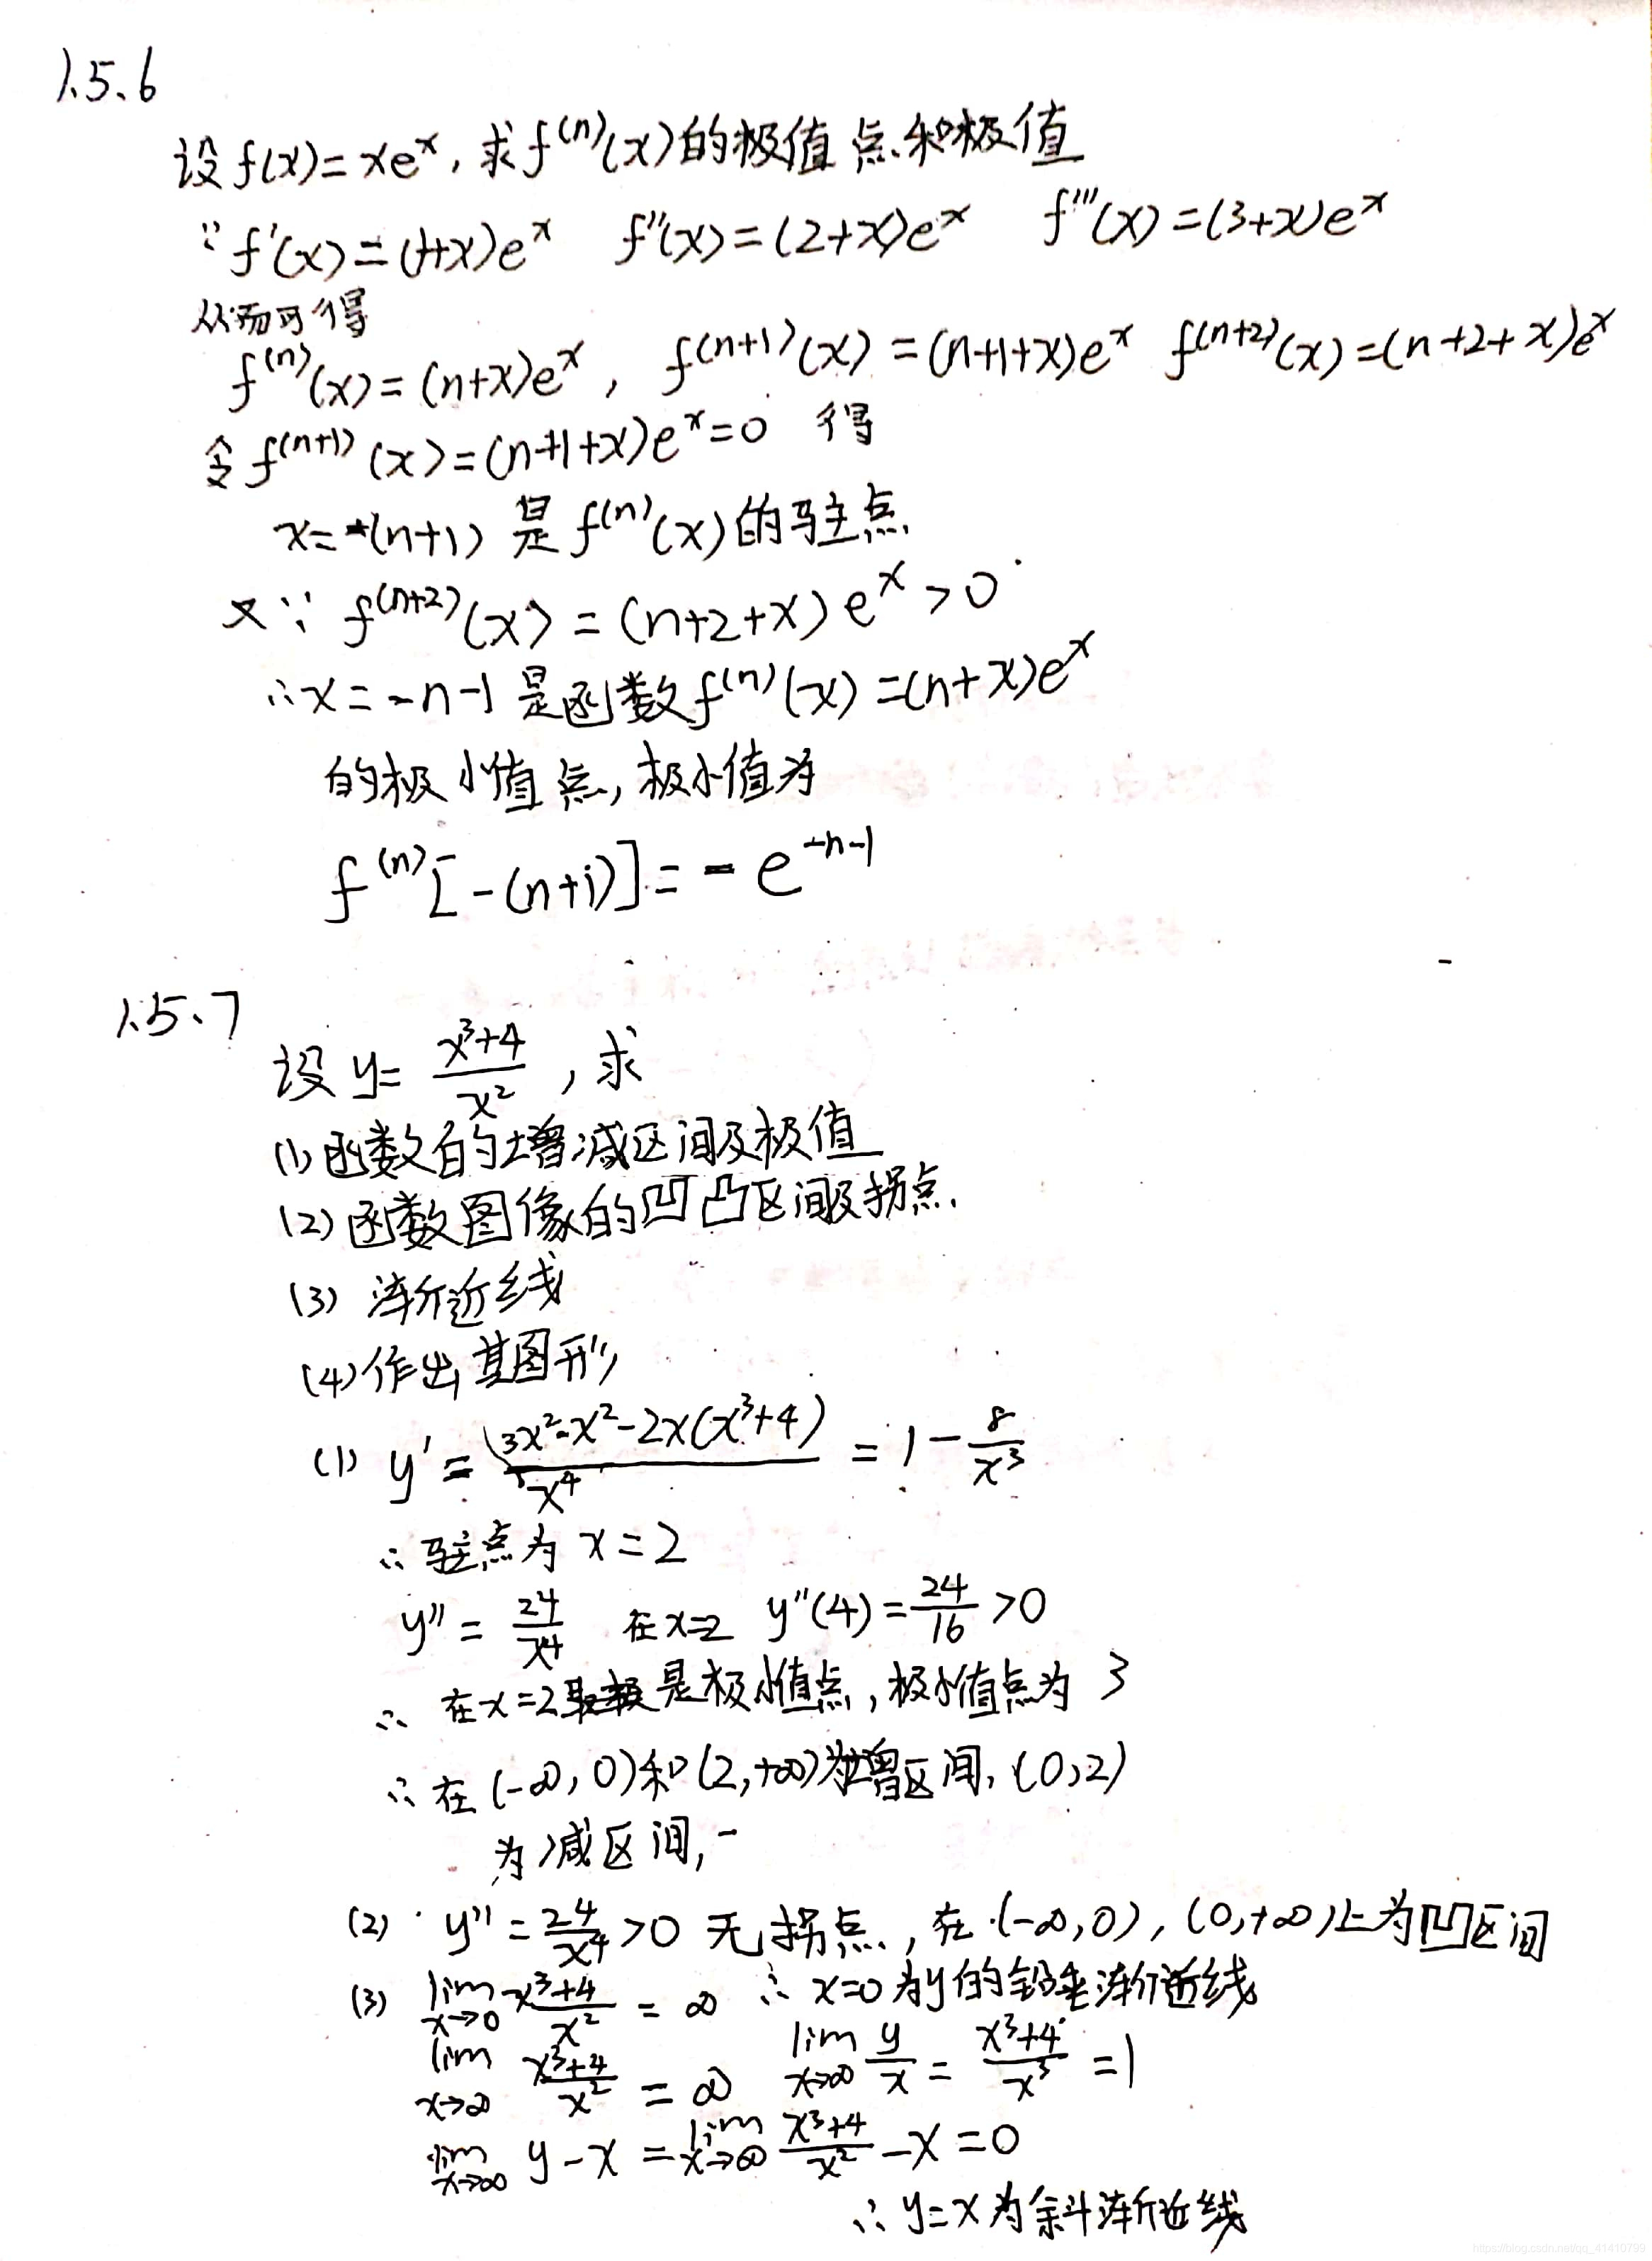 1.5.6
设f(x)=xeˣ, 求f⁽ⁿ⁾(x)的极值点和极值
∵ f'(x)=(1+x)eˣ f''(x)=(2+x)eˣ f'''(x)=(3+x)eˣ
从而可得
f⁽ⁿ⁾(x)=(n+x)eˣ, f⁽ⁿ⁺¹⁾(x)=(n+1+x)eˣ f⁽ⁿ⁺²⁾(x)=(n+2+x)eˣ
令f⁽ⁿ⁺¹⁾(x)=(n+1+x)eˣ=0 得
x=-(n+1) 是f⁽ⁿ⁾(x)的驻点
又∵ f⁽ⁿ⁺²⁾(x)=(n+2+x)eˣ>0
∴x=-n-1是函数f⁽ⁿ⁾(x)=(n+x)eˣ
的极小值点, 极小值为
f⁽ⁿ⁾[-(n+1)]=-e⁻ⁿ⁻¹
1.5.7
设 y= (x³+4)/x² , 求
(1)函数的增减区间及极值
(2)函数图像的凹凸区间及拐点.
(3) 渐近线
(4)作出其图形
(1) y' = (3x²·x²-2x(x³+4))/x⁴ = 1-8/x³
∴驻点为 x=2
y''=24/x⁴ 在x=2 y''(4)=24/16>0
∴ 在x=2是极小值点, 极小值点为 3
∴在(-∞,0)和(2,+∞)为增区间, (0,2)
为减区间,
(2) y''=24/x⁴>0 无拐点, 在(-∞,0), (0,+∞)上为凹区间
(3) lim x→0 (x³+4)/x² = ∞ ∴x=0为y的铅垂渐近线
lim x→∞ (x³+4)/x² = ∞ lim x→∞ y/x = (x³+4)/x³ =1
lim x→∞ y-x = lim x→∞ (x³+4)/x² -x=0
∴y=x为斜渐近线
https://blog.csdn.net/qq_41410799